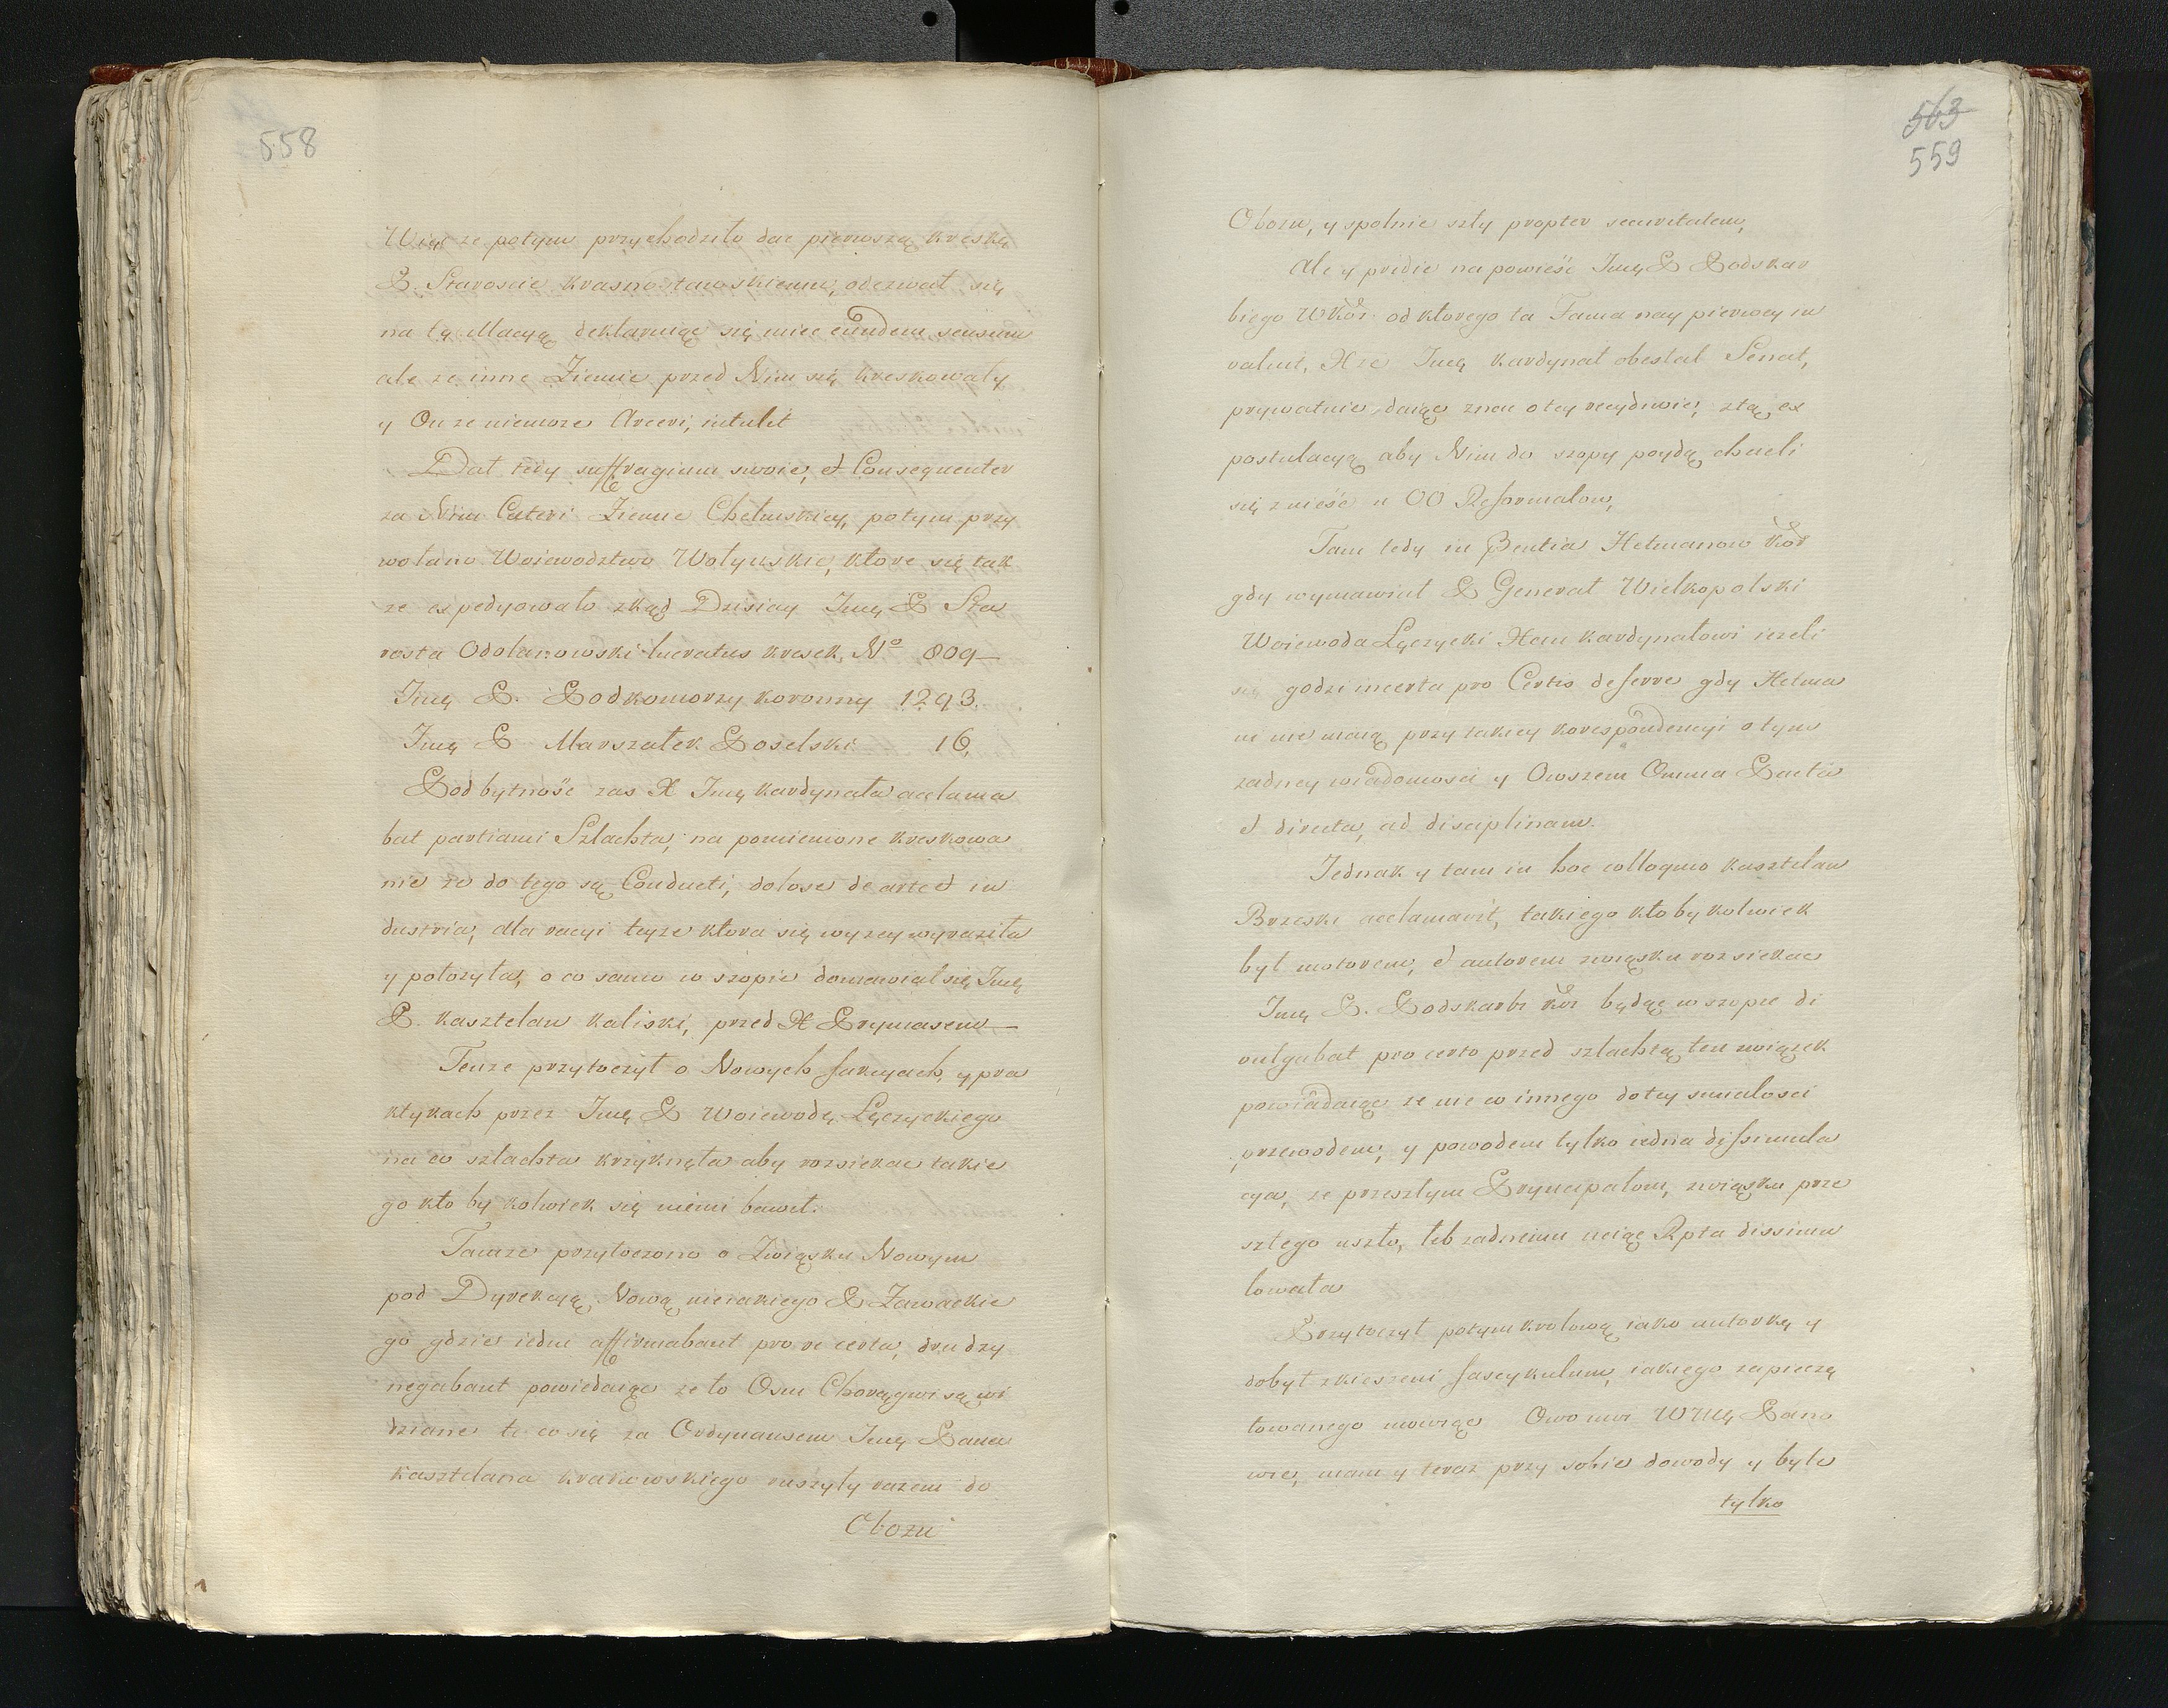 558
Więc ze potym przychodziło dac pierwszą kreskę
P. Staroscie krasnostawskiemu, odezwał się
na tę Macyą deklaruiąc się miec eundem sensum
ale ze inne Ziemie przed Nim się kreskowały
y On ze niemoze Arceri, intulit
Dał tedy suffragium swoie, et Consequenter
za Nim Cæteri Ziemie Chełmskiey, potym przy
wołano Woiewodztwo Wołynskie, ktore się tak
ze expedyowało zkąd Dzisiay Jmę P Sta
rosta Odolanowski lucratus kresek, No 809
Jmę P. Podkomorzy koronny 1293.
Jmę P Marszałek Poselski 16,
Pod bytność zas X Jmę kardynała acclama
bat partiami Szlachta, na pomienione kreskowa
nie ze do tego są Conducti, dolose de arte et in
dustria, dla racyi teyze ktora się wyzey wyraziła
y połozyła, o co samo w szopie domawiał się Jmę
P. kasztelan kaliski, przed X Prymasem
Tenze przytoczył o Nowych fakcyach, y pra
ktykach przez Jmę P Woiewodę Łęczyckiego
na co szlachta krzyknęła aby rozsiekac takie
go kto by kolwiek się niemi bawił.
Tamze przytoczono o Związku Nowym
pod Dyrekcyą Nową nieiakiego P Zawackie
go gdzie iedni affirmabant pro re certa, drudzy
negabant powiedaiąc ze to Osm Chorągwi są wi
dziane te co się za Ordynansem Jmę Pana
kasztelana krakowskiego ruszyły razem do
Obozu
563
559
Obozu, y spolnie szły propter securitatem,
Ale y pridie na powieść Jmę P Podskar
biego WKor: od ktorego ta Fama nay pierwey in
valuit, Xze Jmę kardynał obesłał Senat,
prywatnie, daiąc znac o tey recydiwie, ztą ex
postulacyą aby Nim do szopy poydą chcieli
się znieść u OO Reformatow,
Tam tedy in Bentia Hetmanow Kor
gdy wymawiał P Generał Wielkopolski
Woiewoda Łęczycki Xciu kardynałowi iezeli
się godzi incerta pro Certis deferre gdy Hetma
ni nie maią przy takiey korespondencyi o tym
zadney wiadomosci y Owszem Omnia Pacta
et directa, ad disciplinam.
Jednak y tam in hoc colloquio kasztelan
Brzeski acclamavit, takiego kto by kolwiek
był motorem, et autorem związku rozsiekac
Jmę P. Podskarbi Kor będąc w szopie di
vulgabat pro certo przed szlachtą ten związek
powiadaiąc ze nie co innego do tey smiałosci
przewodem, y powodem tylko iedna dissimula
cya, ze przeszłym Pryncypałom, związku prze
szłego uszło, łeb zadnemu uciąc Rpta dissimu
lowała
Przytoczył potym krolową iako autorkę y
dobył zkieszeni fascykulum, iakiego zapieczę
towanego mowiąc Owo moi WMę Pano
wie, mam y teraz przy sobie dowody y byle
tylko